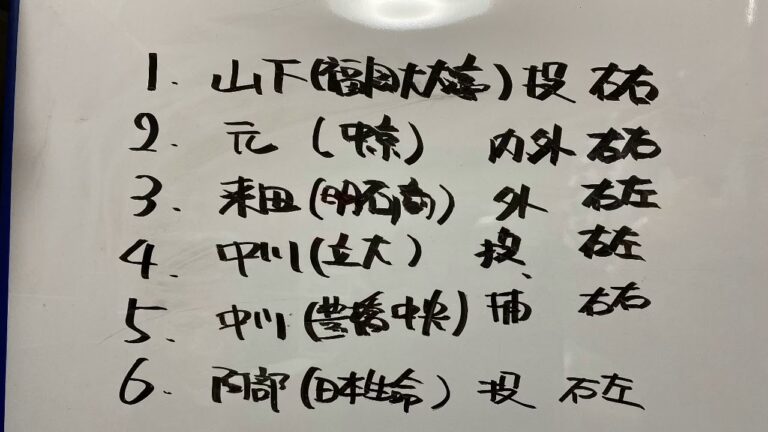 1. 山下(福岡大大濠) 投 右右
2. 元 (中京) 内外 右右
3. 来田(明石商) 外 右左
4. 中川(立大) 投 右左
5. 中川(豊橋中央) 捕 右右
6. 阿部(日本生命) 投 右左